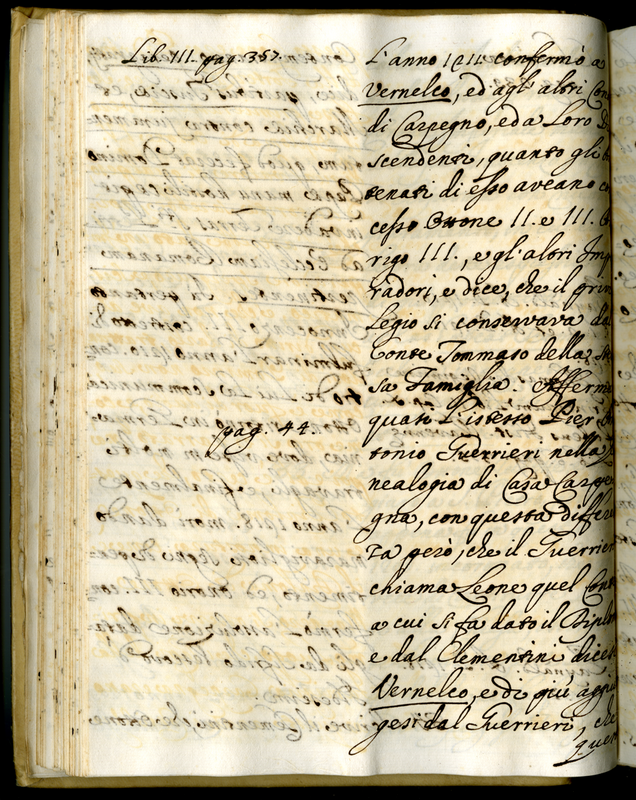 Lib. III. pag. 357.
L'anno 1211. confermò a
Vernelco, ed agl'altri Con
di Carpegno, ed a Loro D
scendenti, quanto gli
tenati di esso aveano co
cesso Ottone II. e III.
rigo III., e gl'altri Imp
radori, e dice, che il priu
legio si conservava da
Conte Tommaso della Ste
sa Famiglia. Afferma
quasi L'istesso Pier
pag. 44.
tonio Guerrieri nella
nealogia di Casa Carpe
gna, con questa differe
za però, che il Guerrier
chiama Leone quel Cont
a cui si fa dato il Diplo
e dal Clementini dices
Vernelco, e di più aggiu
gesi dal Guerrieri, che
quest